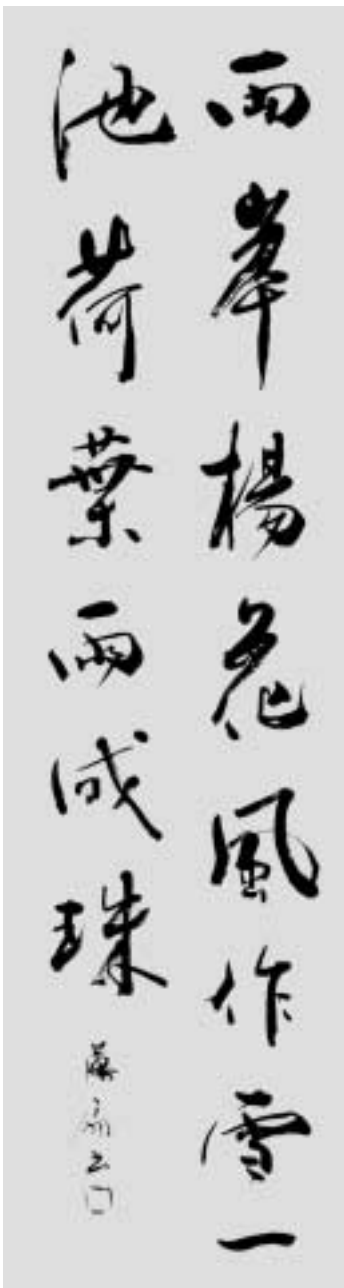 両岸楊花風作雪一
池荷葉雨成珠